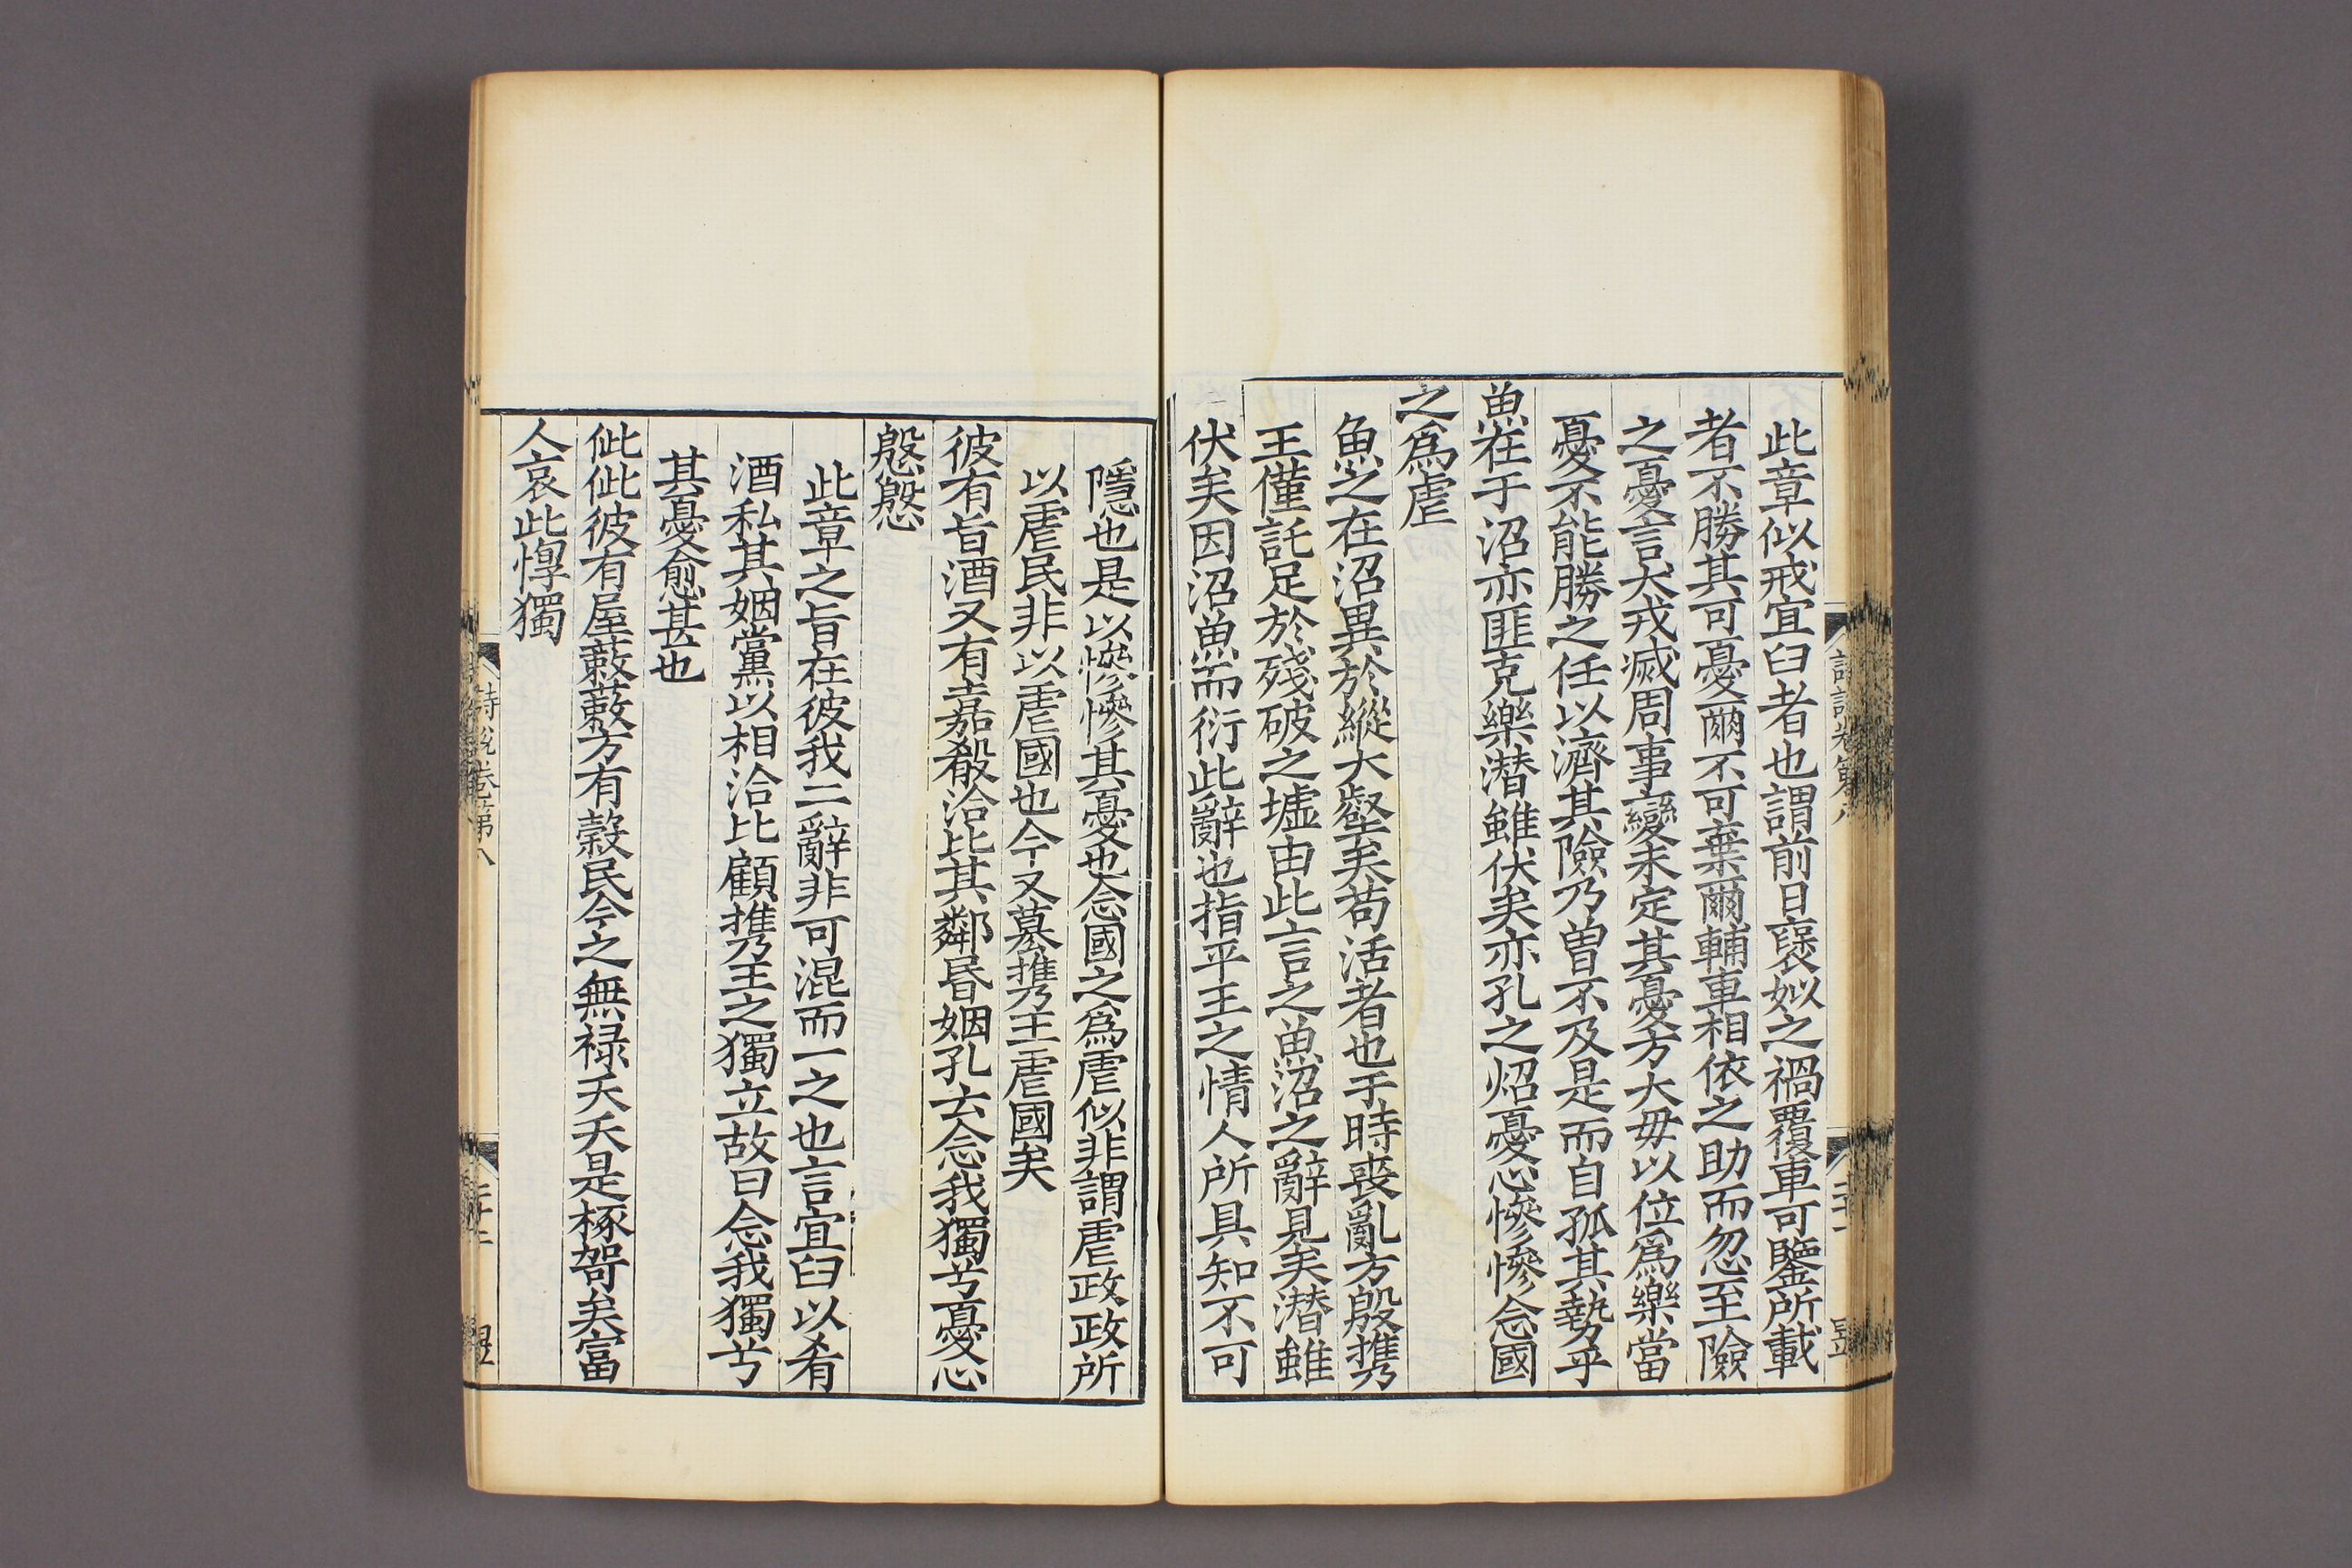 此章似戒宜臼者也謂前日褒姒之禍覆車可鑒所載
者不勝其可憂爾不可棄爾輔車相依之助而忽至險
之憂言犬戎滅周事變未定其憂方大毋以位爲樂當
憂不能勝之任以濟其險乃曽不及是而自孤其勢乎
魚在于沼亦匪克樂潜雖伏矣亦孔之炤憂心慘慘念國
之爲虐
魚之在沼異於縱大壑矣苟活者也于時喪亂方殷攜
王僅託足於殘破之墟由此言之魚沼之辭見矣潜雖
伏矣因沼魚而衍此辭也指平王之情人所具知不可
隱也是以慘慘其憂也念國之爲虐似非謂虐政政所
以虐民非以虐國也今又墓攜王虐國矣
彼有旨酒又有嘉殽洽比其鄰昏姻孔云念我獨兮憂心
慇慇
此章之旨在彼我二辭非可混而一之也言宜臼以肴
酒私其姻黨以相洽比顧攜王之獨立故曰念我獨兮
其憂愈甚也
佌佌彼有屋蔌蔌方有穀民今之無禄夭夭是椓哿矣富
人哀此惸獨
詩說卷第八
二十二